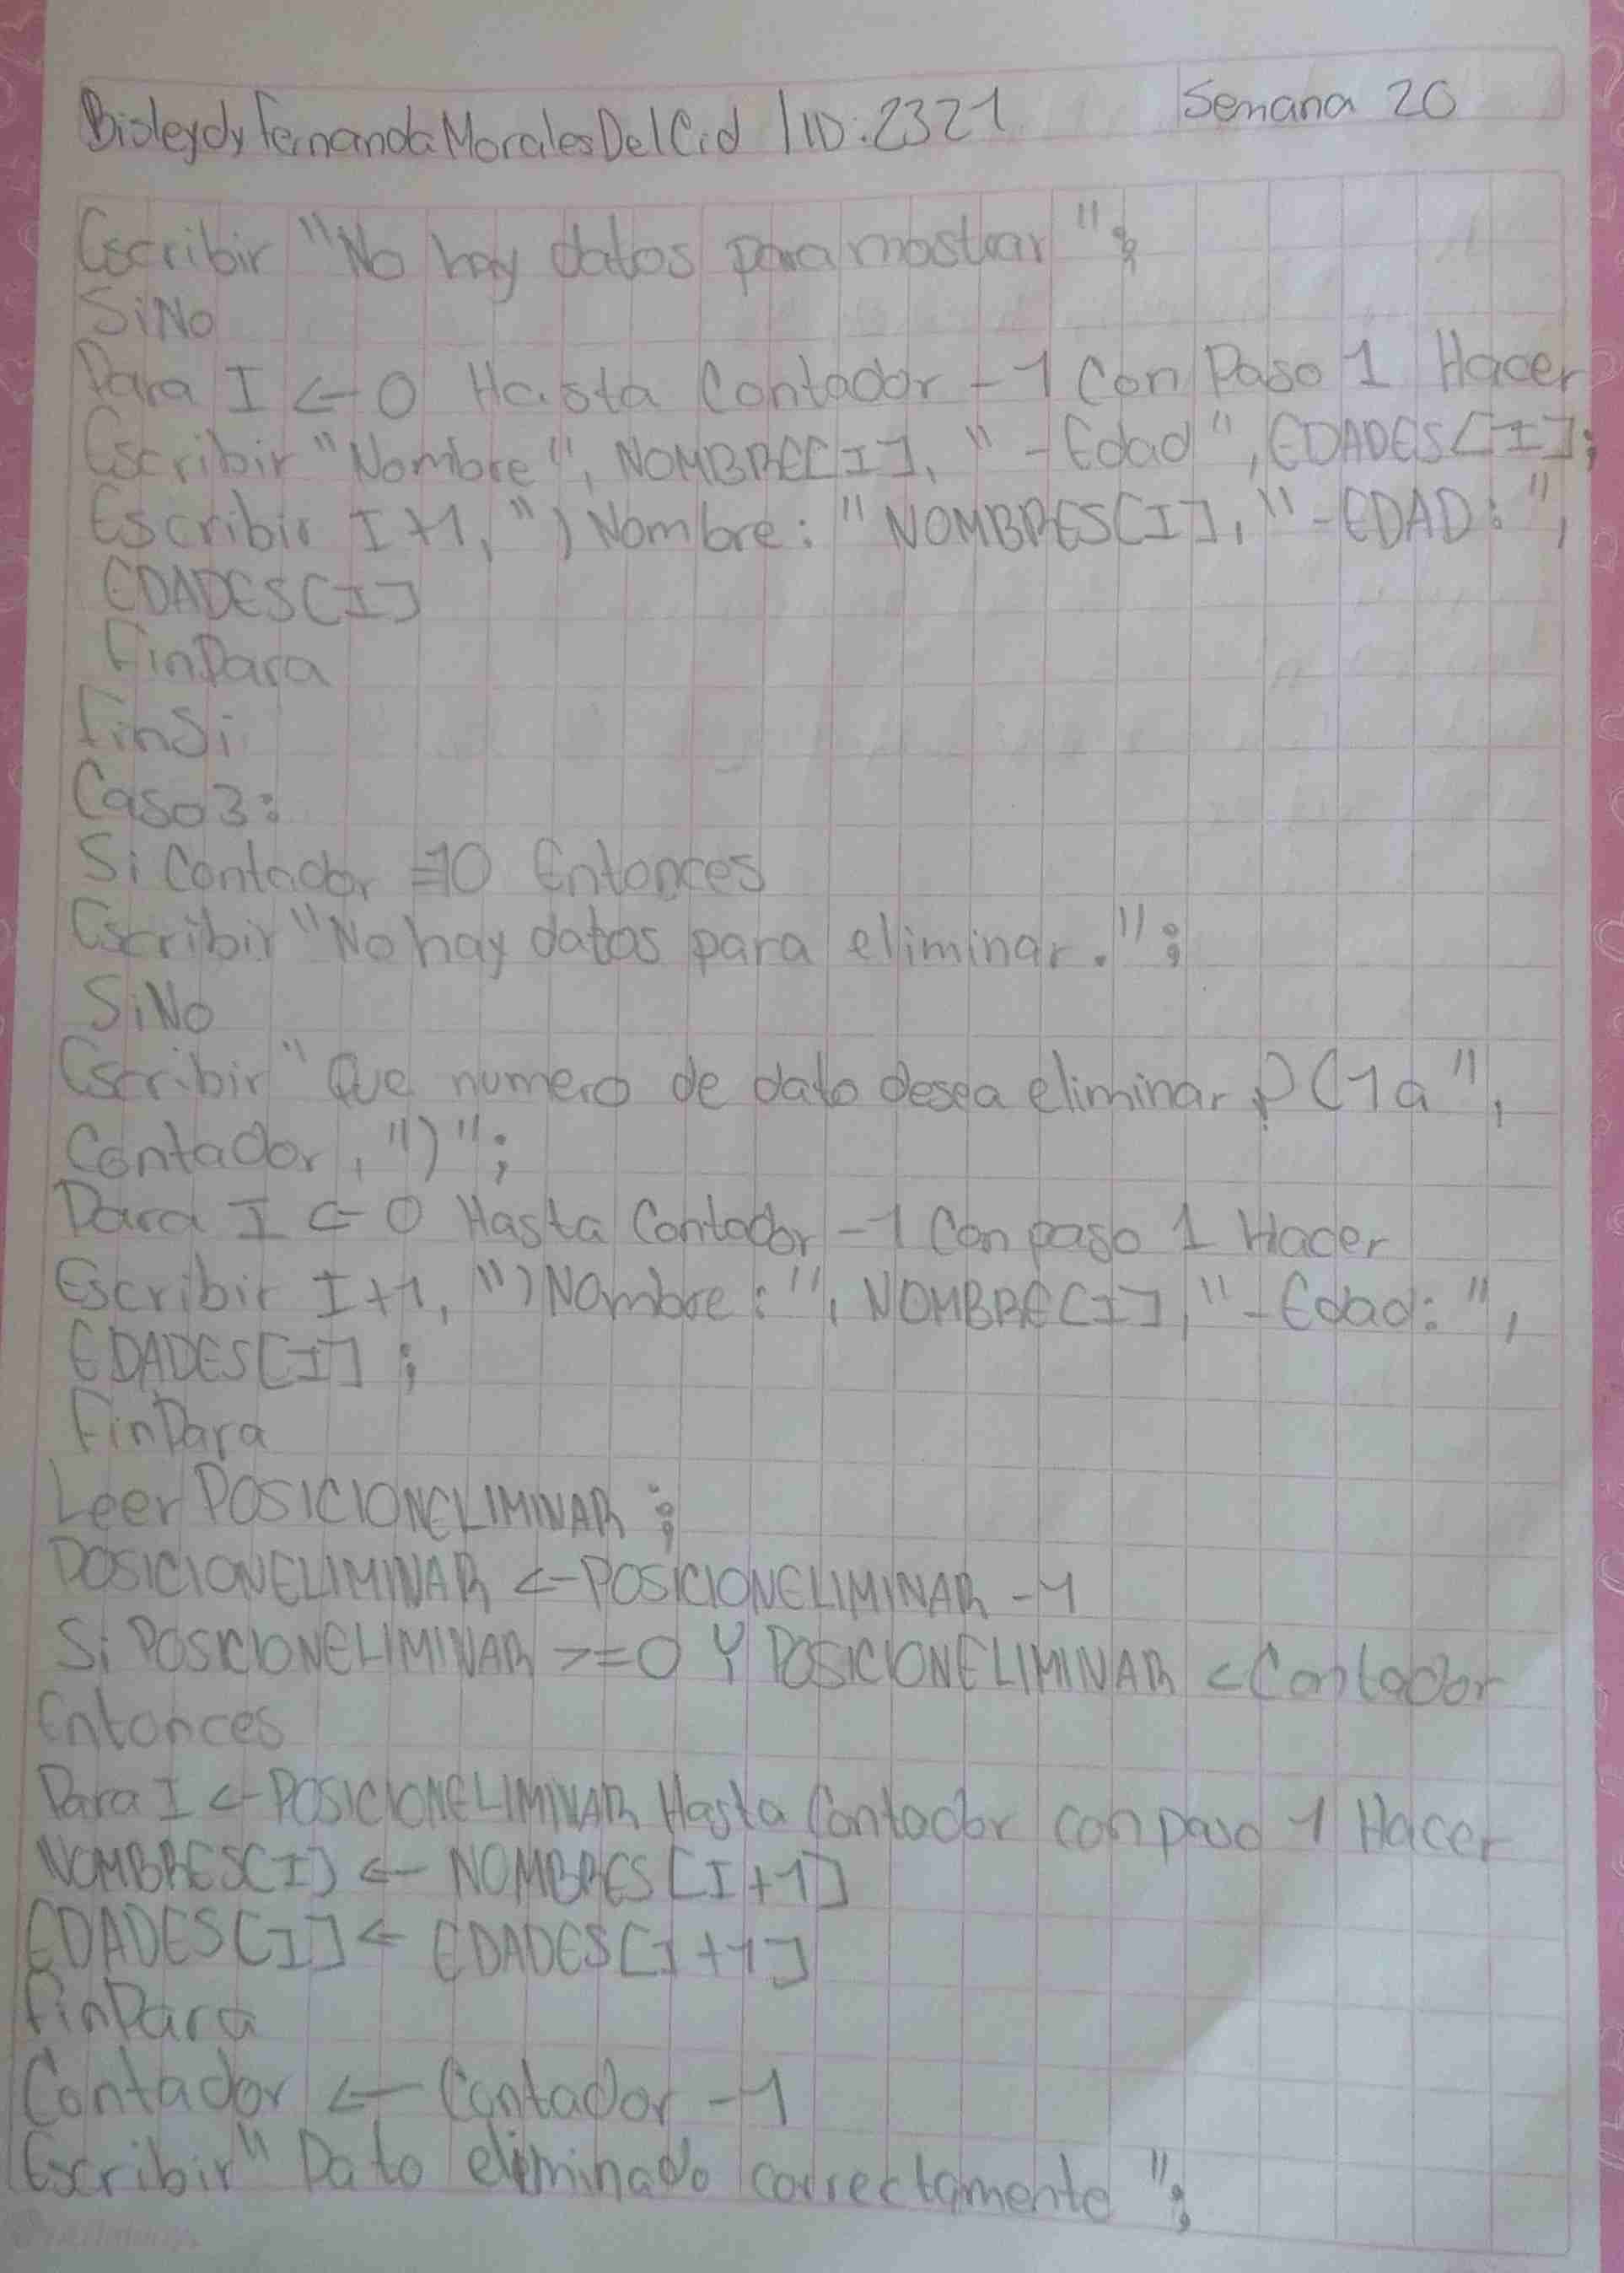 Bisleydy Fernanda Morales Del Cid | ID: 2321 Semana 20
Escribir "No hay datos para mostrar";
SiNo
Para I <- 0 Hasta Contador -1 Con Paso 1 Hacer
Escribir "Nombre", NOMBRE[I], "-Edad", EDADES[I];
Escribir I+1, ") Nombre: "NOMBRES[I], "-EDAD:",
EDADES[I]
FinPara
FinSi
Caso 3:
Si Contador =10 Entonces
Escribir "No hay datos para eliminar.";
SiNo
Escribir "Que numero de dato desea eliminar? (1a",
Contador, ")";
Para I <- 0 Hasta Contador -1 Con paso 1 Hacer
Escribir I+1, ") Nombre:", NOMBRE[I], "-Edad:",
EDADES[I];
FinPara
Leer POSICIONELIMINAR;
POSICIONELIMINAR <- POSICIONELIMINAR -1
Si POSICIONELIMINAR >=0 Y POSICIONELIMINAR < Contador
Entonces
Para I <- POSICIONELIMINAR Hasta Contador con paso 1 Hacer
NOMBRES[I] <- NOMBRES[I+1]
EDADES[I] <- EDADES[I+1]
FinPara
Contador <- Contador -1
Escribir "Dato eliminado correctamente";